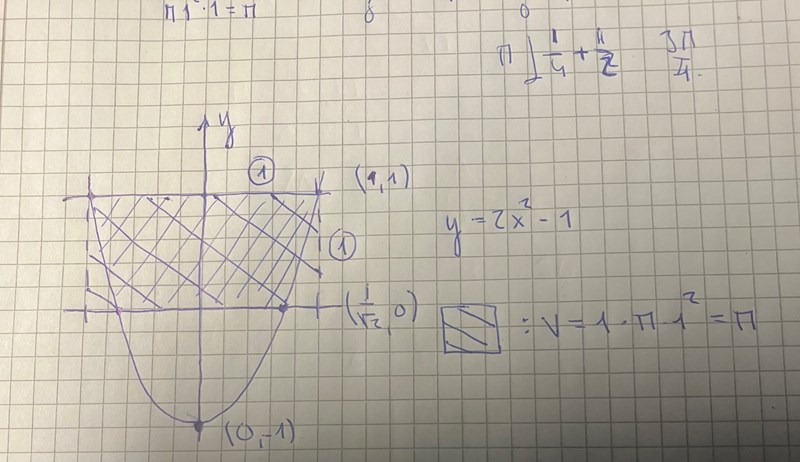 π1²·1=π
8
0
π ∫ 1/4 + 1/2   3π/4
y
① (1,1)
y = 2x² - 1
①
(1/√2, 0)
: V = 1·π·1² = π
(0,-1)